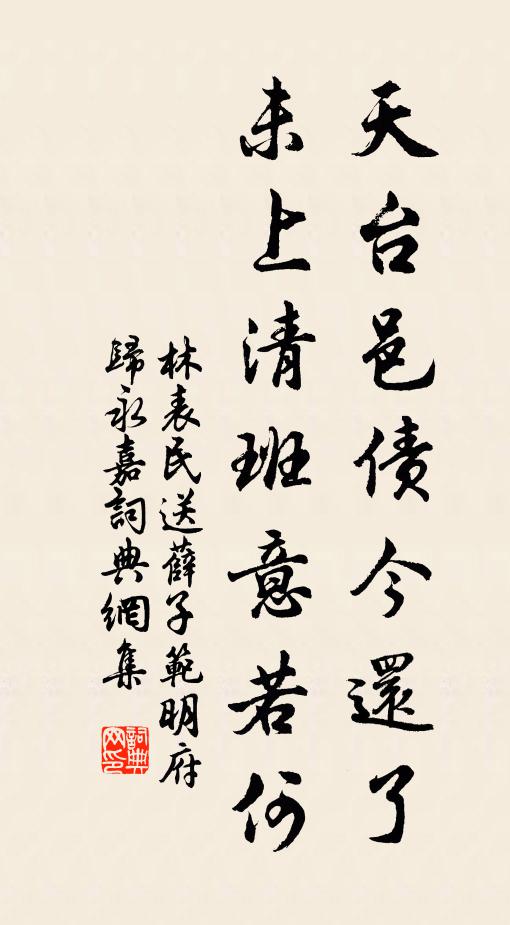 天台邑債今還了
未上清班意若何
林表民送薛子範明府
歸永嘉詞典網集
詞典
网印